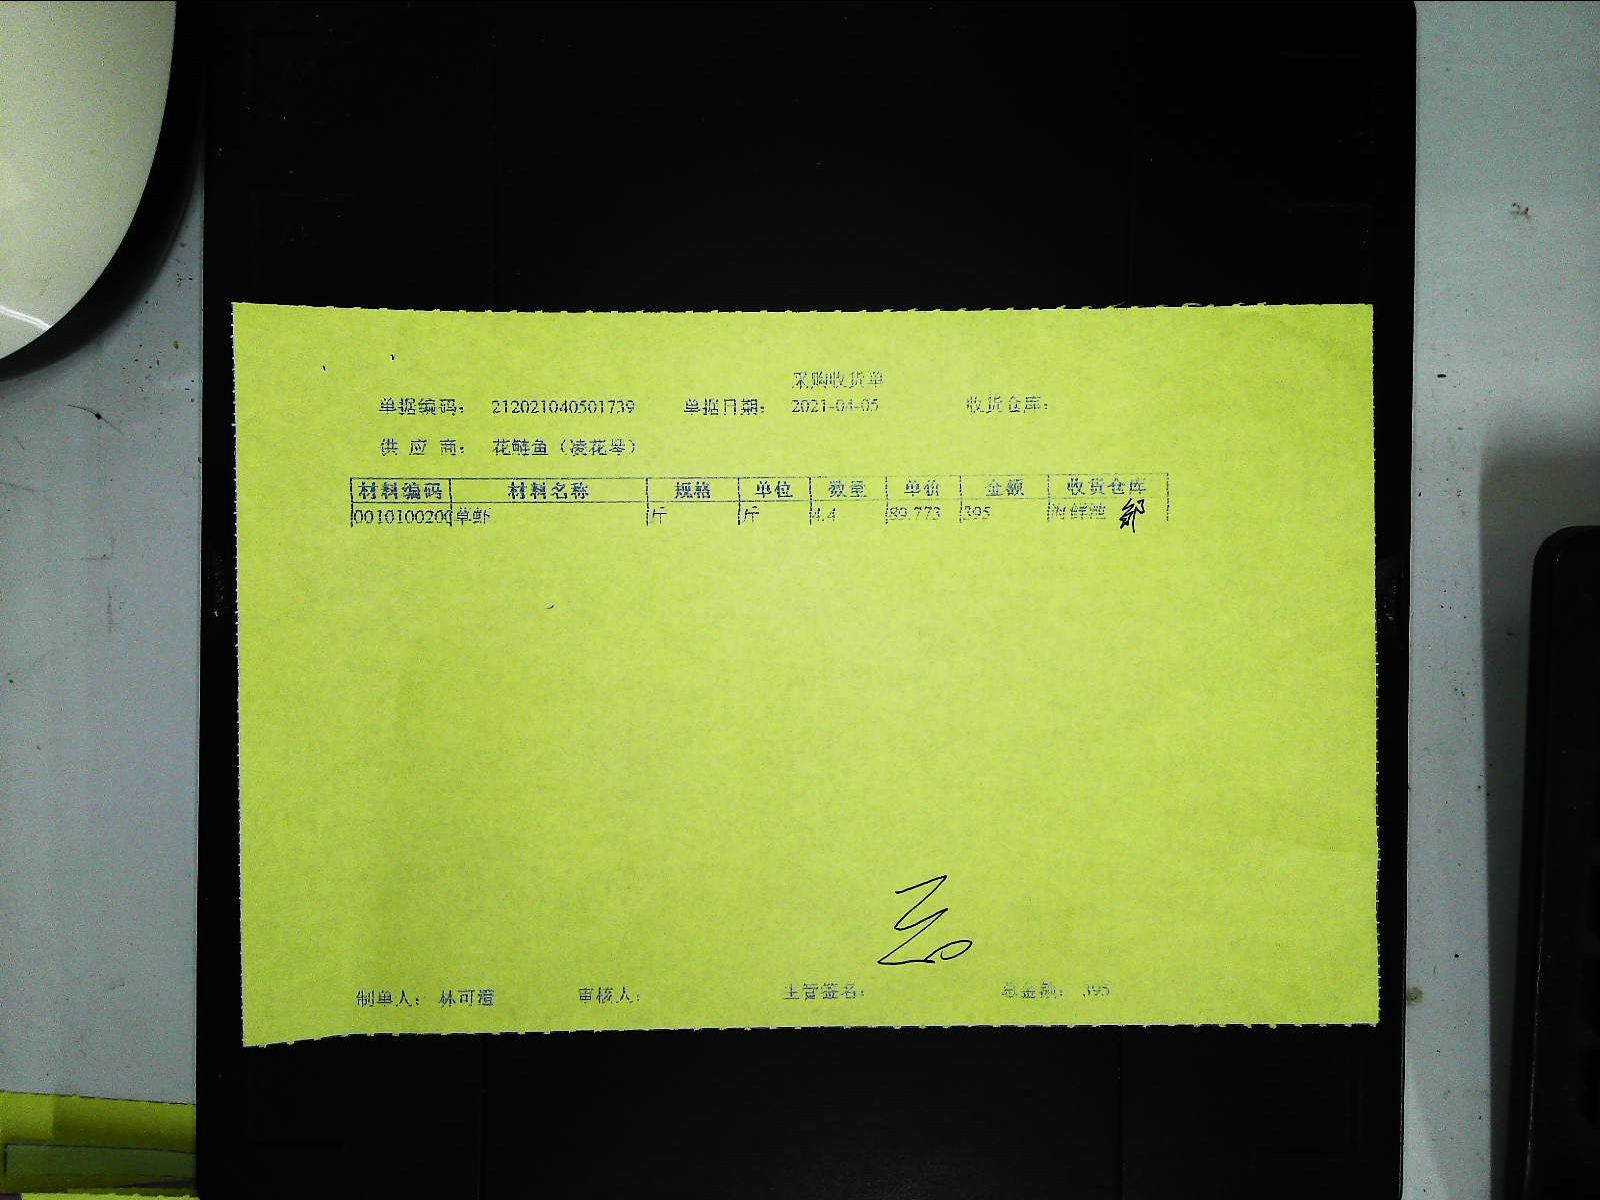 采购收货单
单据编码： 212021040501739 单据日期： 2021-04-05 收货仓库：
供 应 商： 花鲢鱼（凌花琴）
材料编码 材料名称 规格 单位 数量 单价 金额 收货仓库
0010100200 草虾 斤 斤 4.4 89.773 395 海鲜池
制单人： 林可澄 审核人： 主管签名： 总金额： 395